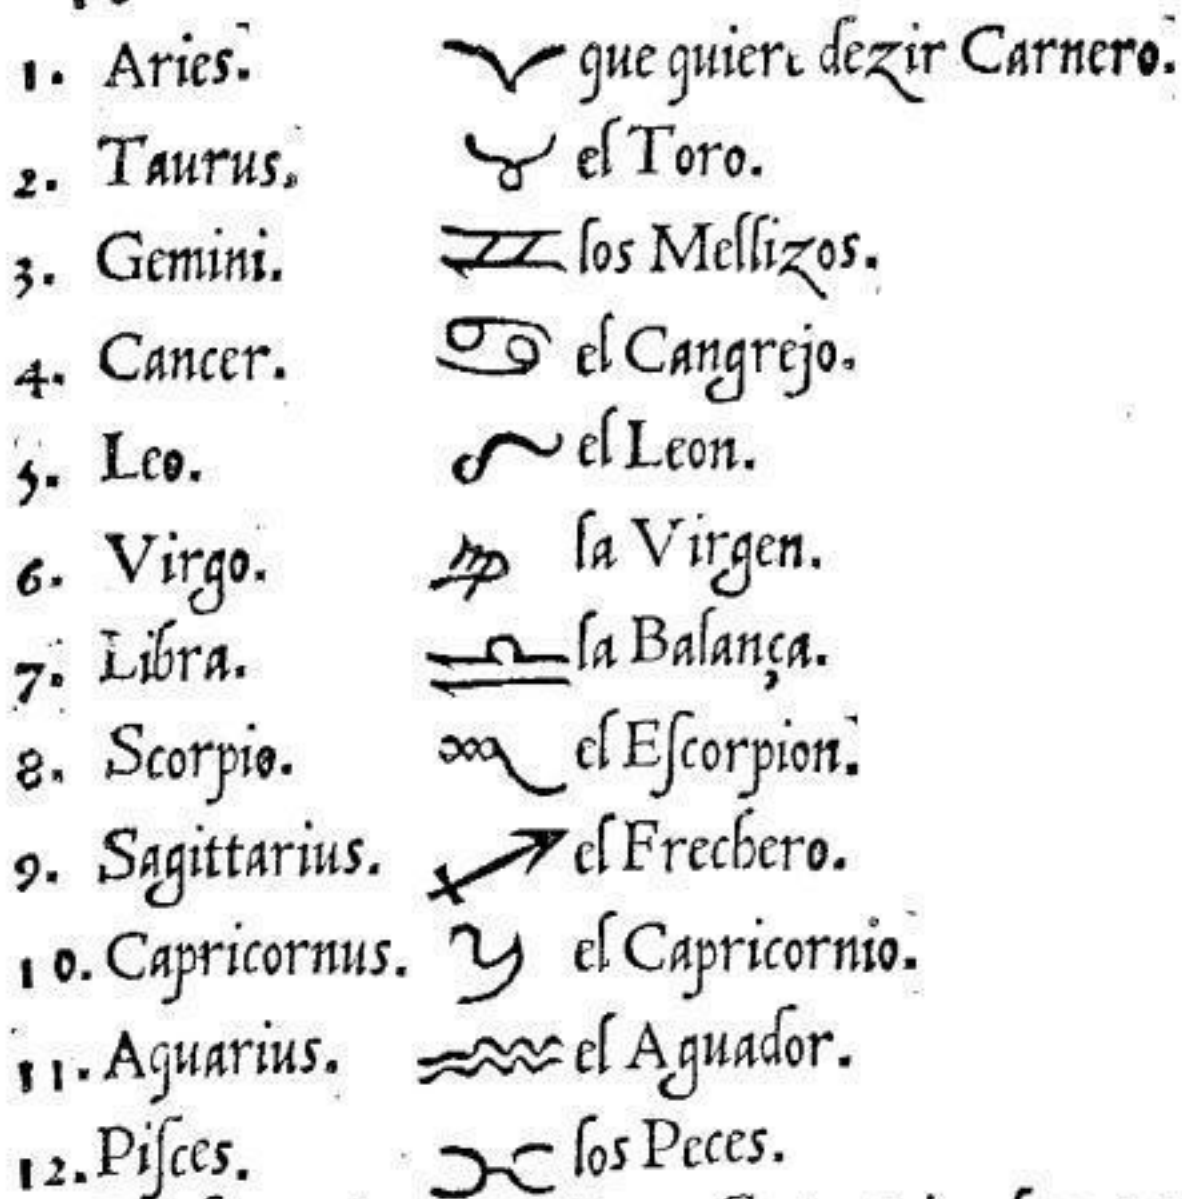 1. Aries. ♈ que quiere dezir Carnero.
2. Taurus. ♉ el Toro.
3. Gemini. ♊ los Mellizos.
4. Cancer. ♋ el Cangrejo.
5. Leo. ♌ el Leon.
6. Virgo. ♍ la Virgen.
7. Libra. ♎ la Balança.
8. Scorpio. ♏ el Eſcorpion.
9. Sagittarius. ♐ el Frechero.
10. Capricornus. ♑ el Capricornio.
11. Aquarius. ♒ el Aguador.
12. Piſces. ♓ los Peces.